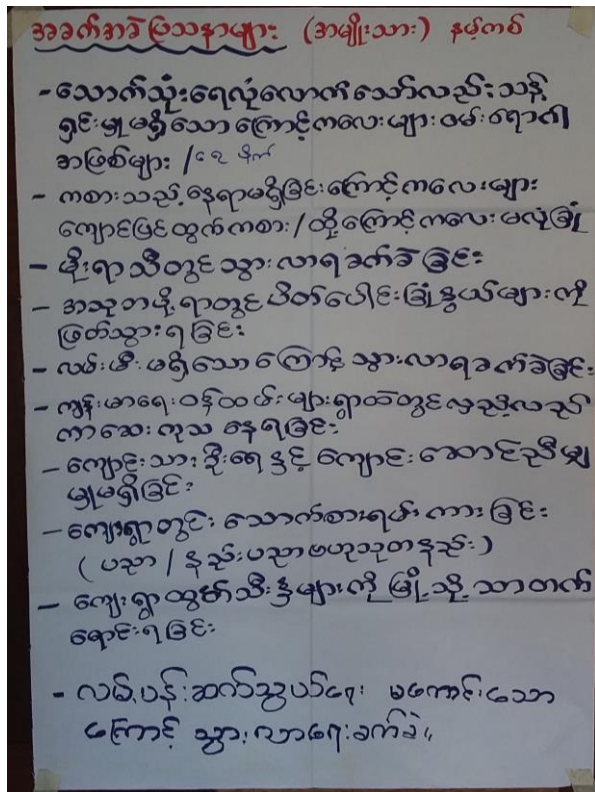 အခက်အခဲပြသနာများ (အမျိုးသား) နမ့်ကစ်
- သောက်သုံးရေလုံလောက်သော်လည်းသန့်
ရှင်းမှုမရှိသောကြောင့်ကလေးများဝမ်းရောဂါ
အဖြစ်များ / ရေ မိုက်
- ကစားသည့်နေရာမရှိခြင်းကြောင့်ကလေးများ
ကျောင်းပြင်ထွက်ကစား / ထို့ကြောင့်ကလေးမလုံခြုံ
- မိုးရာသီတွင်သွားလာရခက်ခဲခြင်း
- အသုဘပို့ရာတွင်ပိတ်ပေါင်းခြုံနွယ်များကို
ဖြတ်သွားရခြင်း
- လမ်းမီးမရှိသောကြောင့်သွားလာရခက်ခဲခြင်း
- ကျန်းမာရေးဝန်ထမ်းများရွာထဲတွင်လှည့်လည်
ကာဆေးကုသနေရခြင်း
- ကျောင်းသားဦးရေနှင့်ကျောင်းဆောင်ညီမျှ
မှုမရှိခြင်း
- ကျေးရွာတွင်းသောက်စားရမ်းကားခြင်း
(ပညာ / နည်းပညာဗဟုသုတနည်း)
- ကျေးရွာထွက်သီးနှံများကိုမြို့သို့သာတက်
ရောင်းရခြင်း
- လမ်းပန်းဆက်သွယ်ရေး မကောင်းသော
ကြောင့် သွားလာရေးခက်ခဲ။